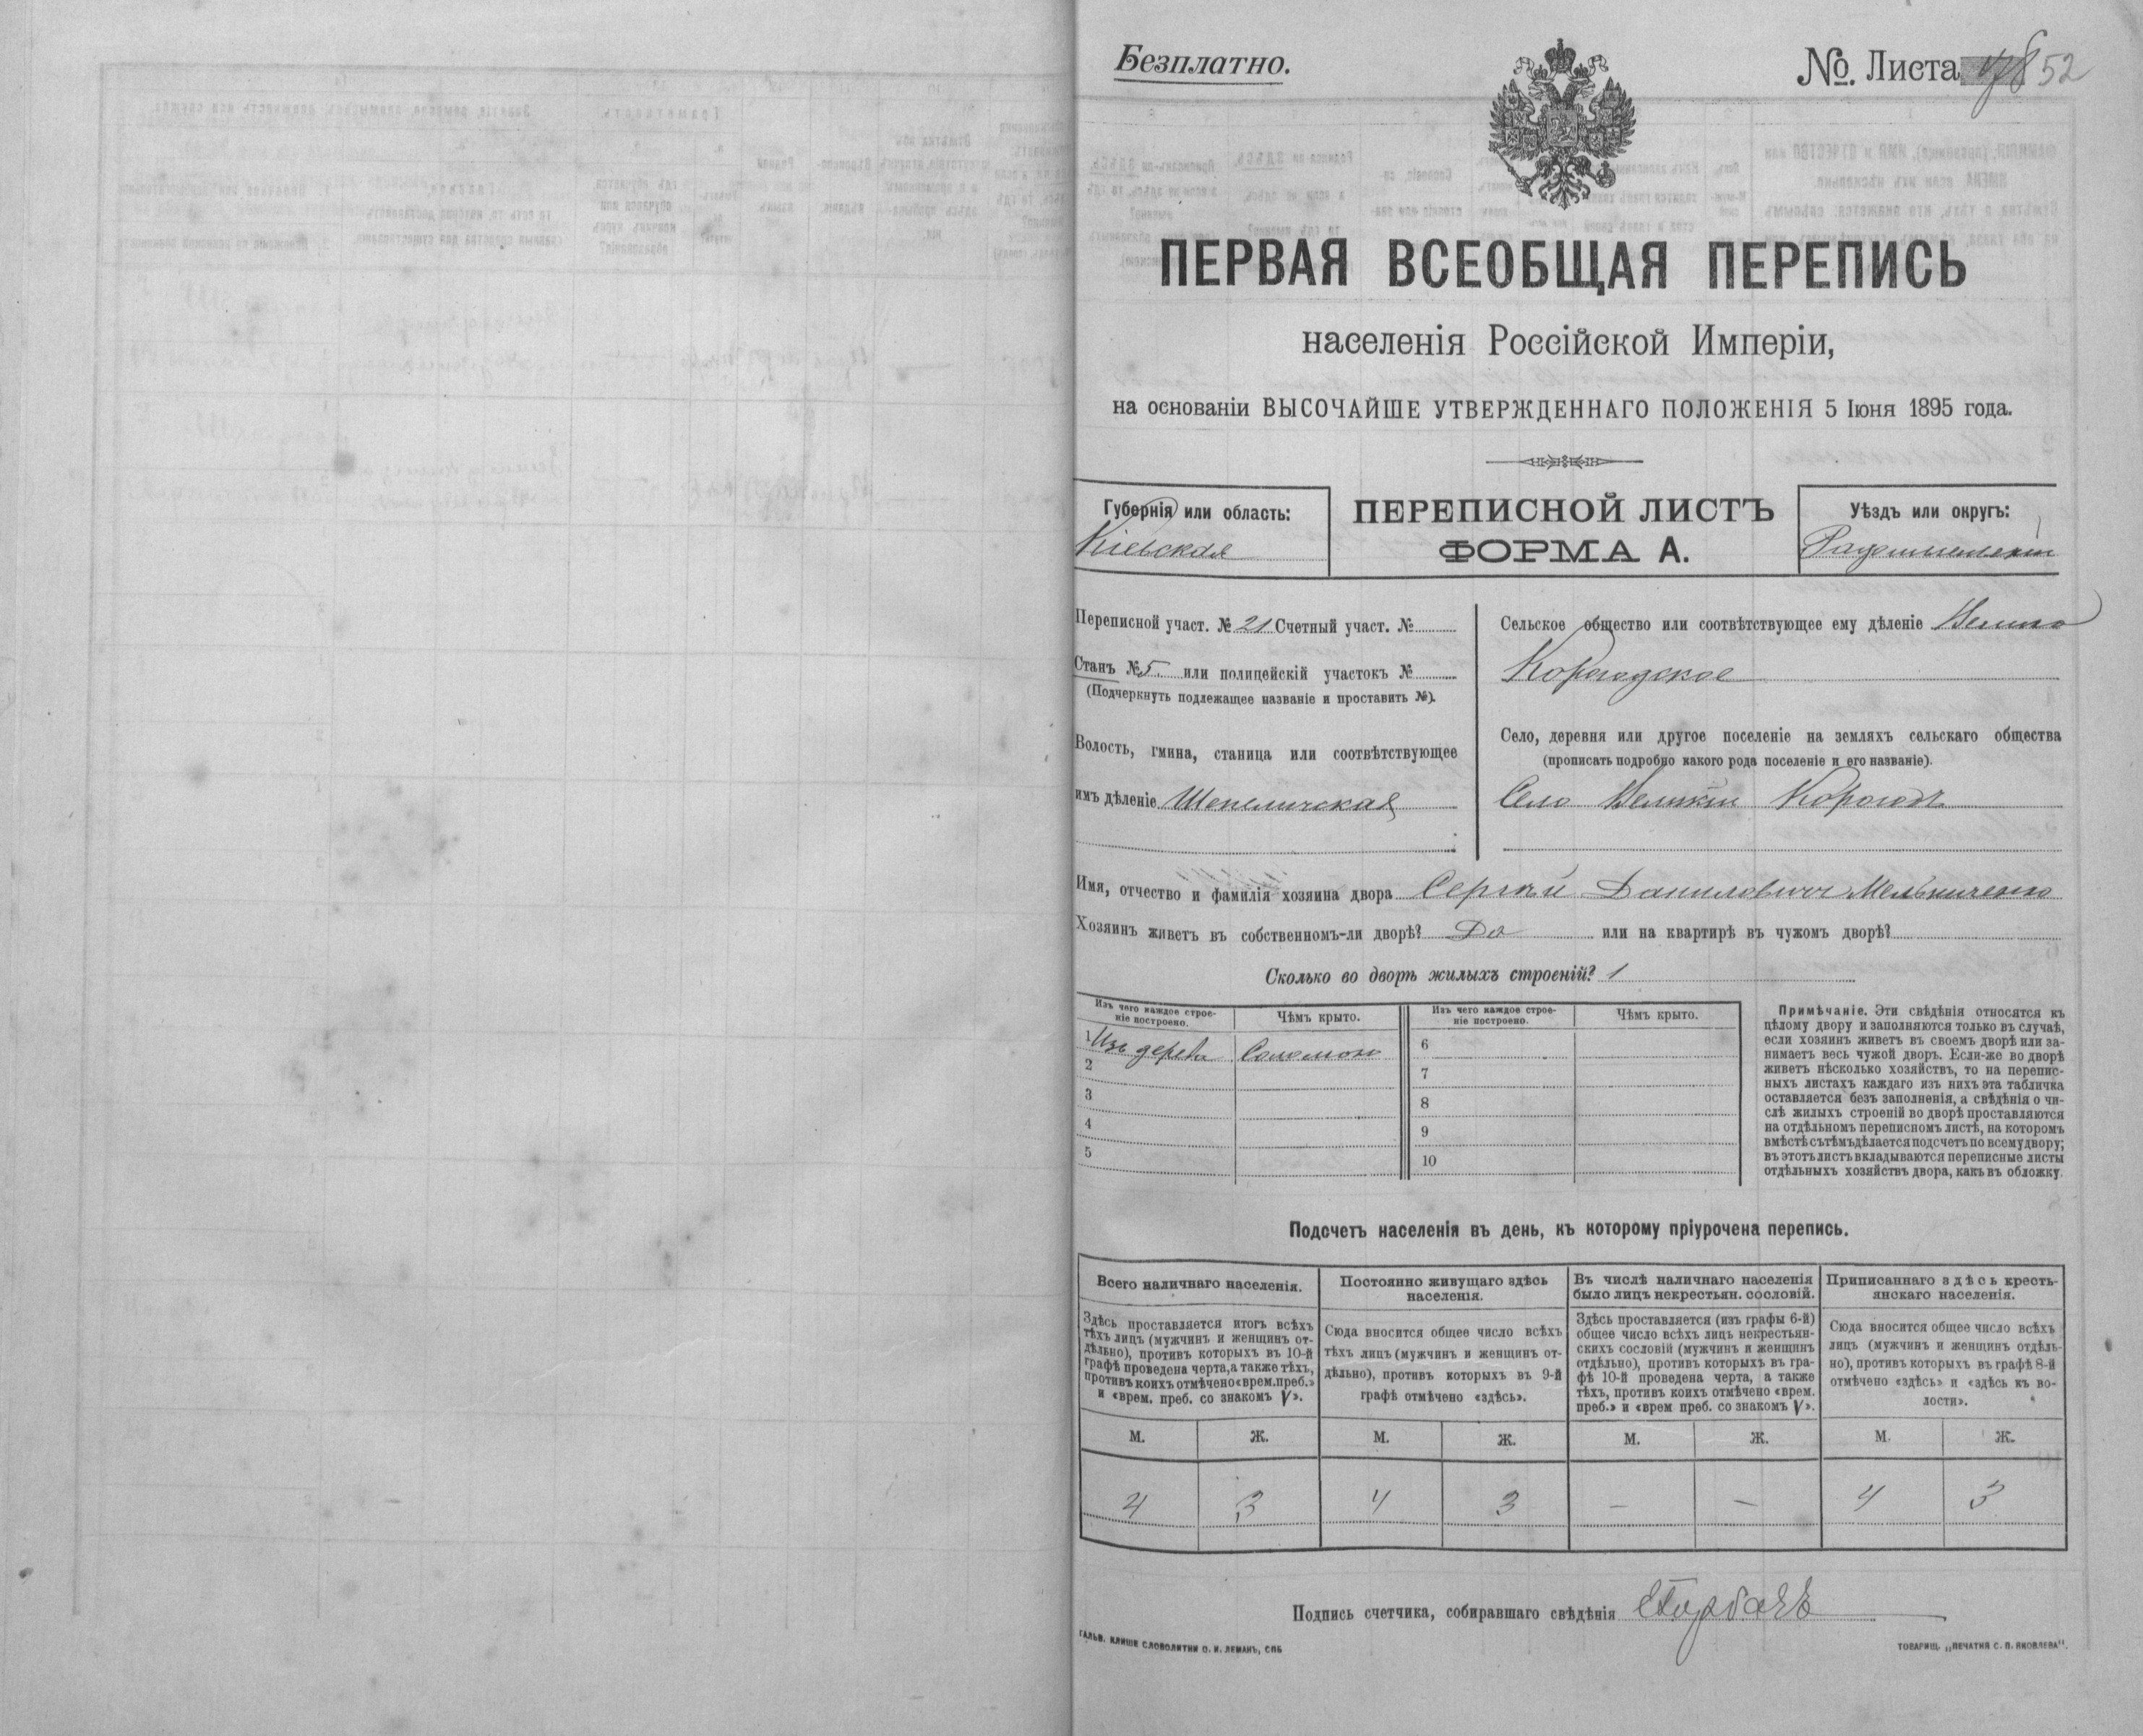 Безплатно.
№ Листа 52
ПЕРВАЯ ВСЕОБЩАЯ ПЕРЕПИСЬ
населенія Россійской Имперіи,
на основаніи ВЫСОЧАЙШЕ УТВЕРЖДЕННАГО ПОЛОЖЕНІЯ 5 Іюня 1895 года.
Губернія или область:
Кіевская
ПЕРЕПИСНОЙ ЛИСТЪ
ФОРМА А.
Уѣздъ или округъ:
Радомысльскій
Переписной участ. № 21 Счетный участ. №
Станъ № 5 или полицейскій участокъ №
(Подчеркнуть подлежащее названіе и проставить №).
Волость, гмина, станица или соотвѣтствующее
имъ дѣленіе Шепеличская
Сельское общество или соотвѣтствующее ему дѣленіе Велико
Корогодское
Село, деревня или другое поселеніе на земляхъ сельскаго общества
(прописать подробно какого рода поселеніе и его названіе).
Село Великій Корогодъ
Имя, отчество и фамилія хозяина двора Сергій Даниловичъ Мельниченко
Хозяинъ живетъ въ собственномъ-ли дворѣ? Да или на квартирѣ въ чужомъ дворѣ?
Сколько во дворѣ жилыхъ строеній? 1
Изъ чего каждое строе-
ніе построено.
Чѣмъ крыто.
Изъ чего каждое строе-
ніе построено.
Чѣмъ крыто.
1 Изъ дерева Соломою
2
3
4
5
6
7
8
9
10
Примѣчаніе. Эти свѣдѣнія относятся къ
цѣлому двору и заполняются только въ случаѣ,
если хозяинъ живетъ въ своемъ дворѣ или за-
нимаетъ весь чужой дворъ. Если-же во дворѣ
живетъ нѣсколько хозяйствъ, то на перепис-
ныхъ листахъ каждаго изъ нихъ эта табличка
оставляется безъ заполненія, а свѣдѣнія о чи-
слѣ жилыхъ строеній во дворѣ проставляются
на отдѣльномъ переписномъ листѣ, на которомъ
вмѣстѣ съ тѣмъ дѣлается подсчетъ по всему двору;
въ этотъ листъ вкладываются переписные листы
отдѣльныхъ хозяйствъ двора, какъ въ обложку.
Подсчетъ населенія въ день, къ которому пріурочена перепись.
Всего наличнаго населенія.
Здѣсь проставляется итогъ всѣхъ
тѣхъ лицъ (мужчинъ и женщинъ от-
дѣльно), противъ которыхъ въ 10-й
графѣ проведена черта, а также тѣхъ,
противъ коихъ отмѣчено «врем. преб.»
и «врем. преб. со знакомъ V».
Постоянно живущаго здѣсь
населенія.
Сюда вносится общее число всѣхъ
тѣхъ лицъ (мужчинъ и женщинъ от-
дѣльно), противъ которыхъ въ 9-й
графѣ отмѣчено «здѣсь».
Въ числѣ наличнаго населенія
было лицъ некрестьян. сословій.
Здѣсь проставляется (изъ графы 6-й)
общее число всѣхъ лицъ некрестьян-
скихъ сословій (мужчинъ и женщинъ
отдѣльно), противъ которыхъ въ гра-
фѣ 10-й проведена черта, а также
тѣхъ, противъ коихъ отмѣчено «врем.
преб.» и «врем преб. со знакомъ V».
Приписаннаго здѣсь кресть-
янскаго населенія.
Сюда вносится общее число всѣхъ
лицъ (мужчинъ и женщинъ отдѣль-
но), противъ которыхъ въ графѣ 8-й
отмѣчено «здѣсь» и «здѣсь къ во-
лости».
М. Ж. М. Ж. М. Ж. М. Ж.
4 3 4 3 — — 4 3
Подпись счетчика, собиравшаго свѣдѣнія
ГАЛЬВ. КЛИШЕ СЛОВОЛИТНИ О. И. ЛЕМАНЪ, СПБ
ТОВАРИЩ. „ПЕЧАТНЯ С. П. ЯКОВЛЕВА".